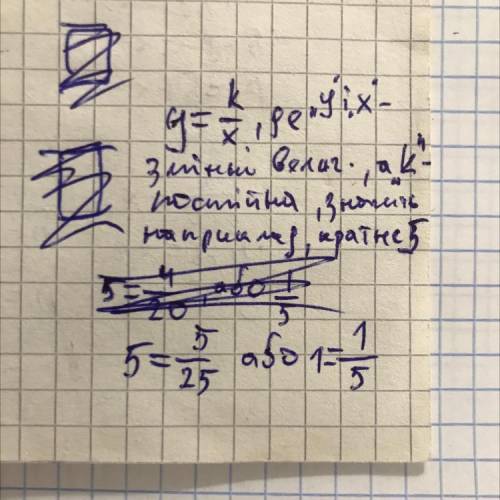 y = k/x, де "y" і "x" -
змінні велич., а "k" -
постійна, значить
наприклад, кратне 5
5 = 4/20 або 1/5
5 = 5/25 або 1 = 1/5